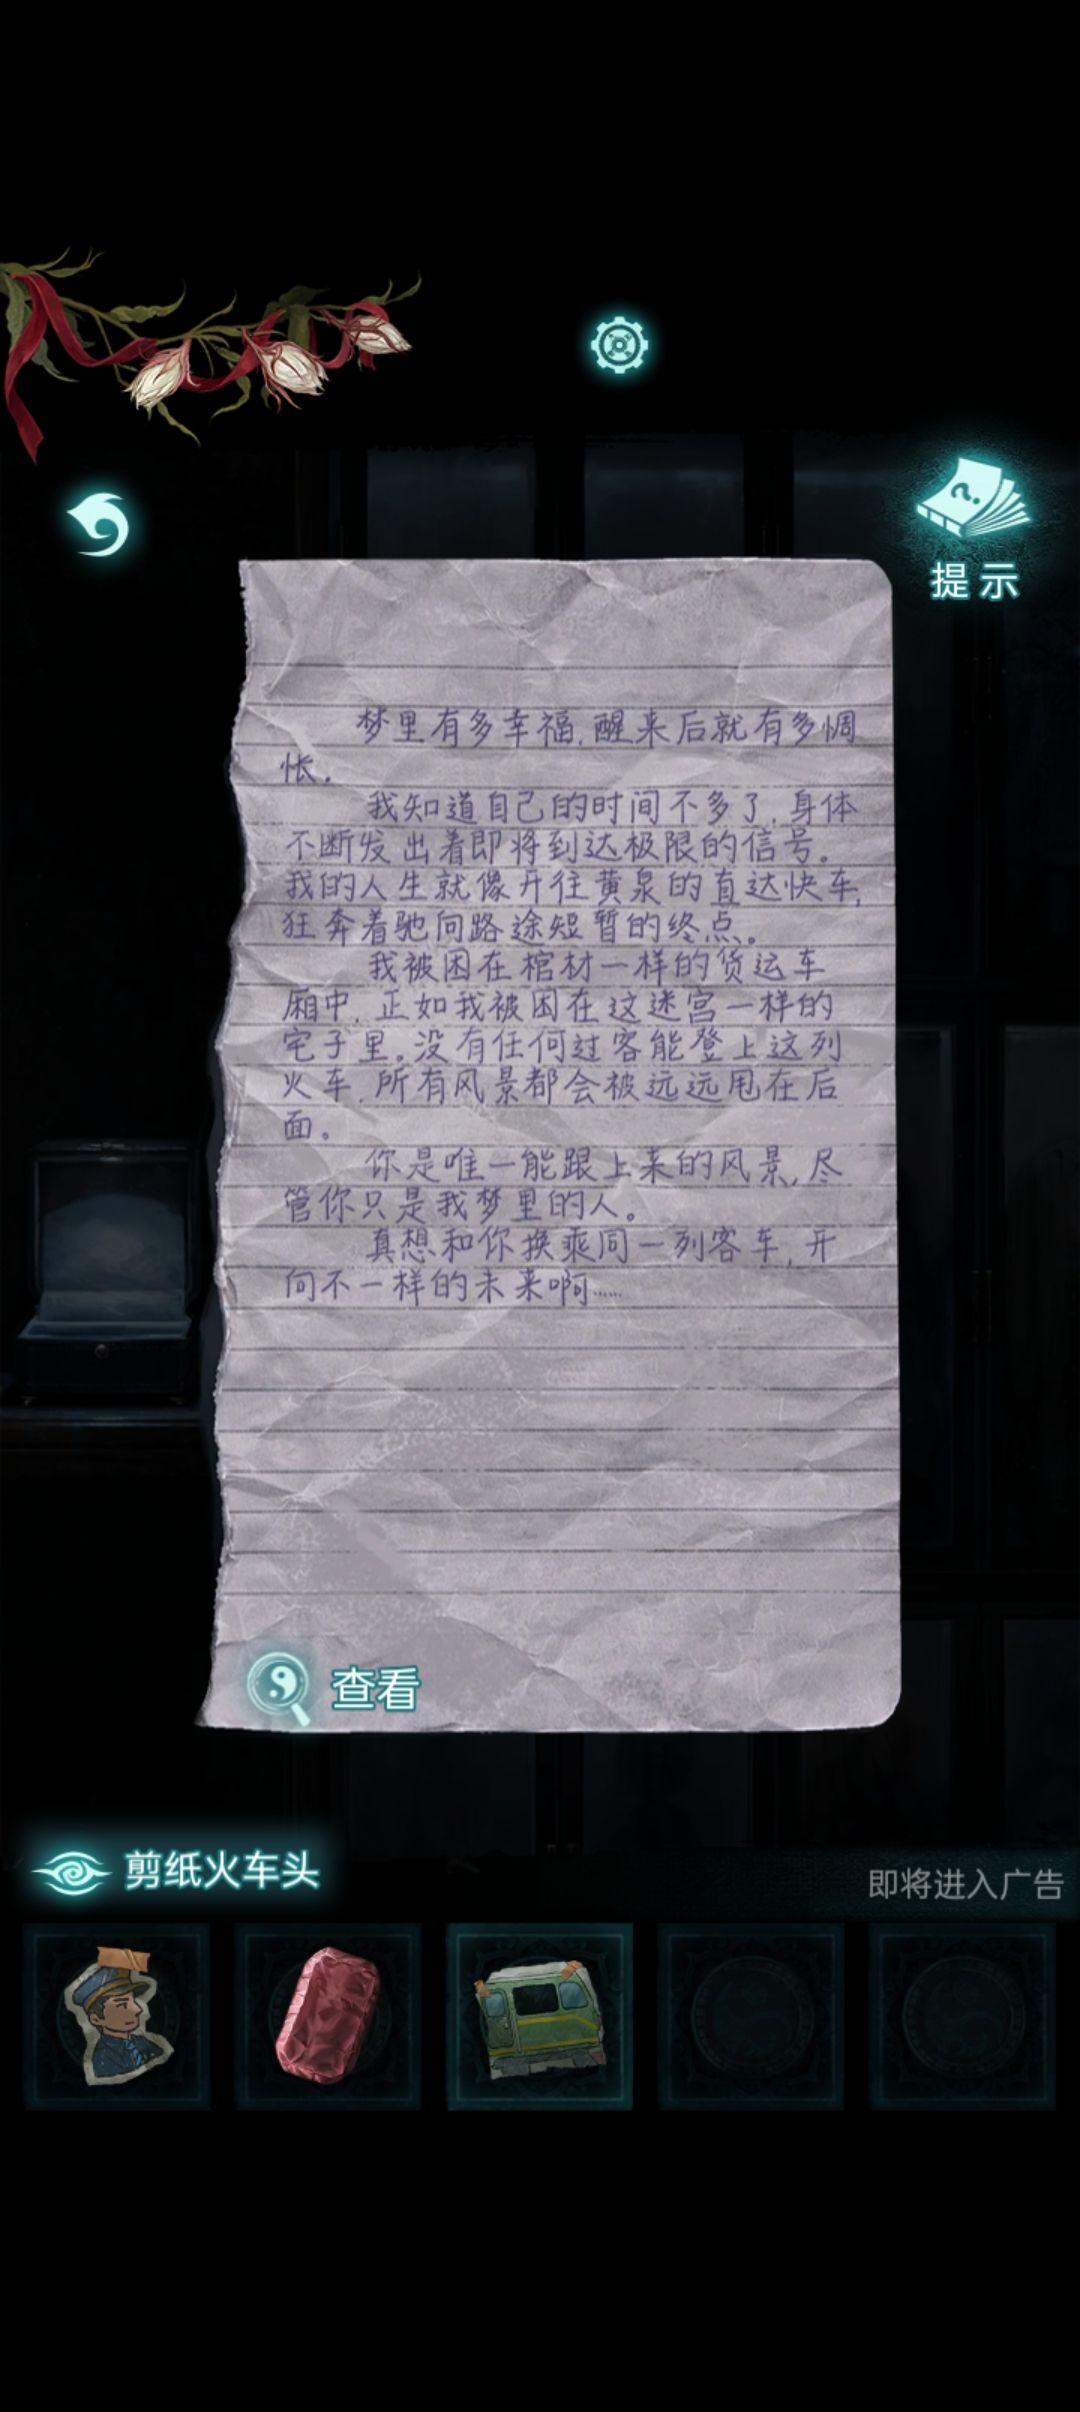 提示
梦里有多幸福,醒来后就有多惆
怅。
我知道自己的时间不多了,身体
不断发出着即将到达极限的信号。
我的人生就像开往黄泉的直达快车,
狂奔着驰向路途短暂的终点。
我被困在棺材一样的货运车
厢中,正如我被困在这迷宫一样的
宅子里。没有任何过客能登上这列
火车,所有风景都会被远远甩在后
面。
你是唯一能跟上来的风景,尽
管你只是我梦里的人。
真想和你换乘同一列客车,开
向不一样的未来啊……
查看
剪纸火车头
即将进入广告